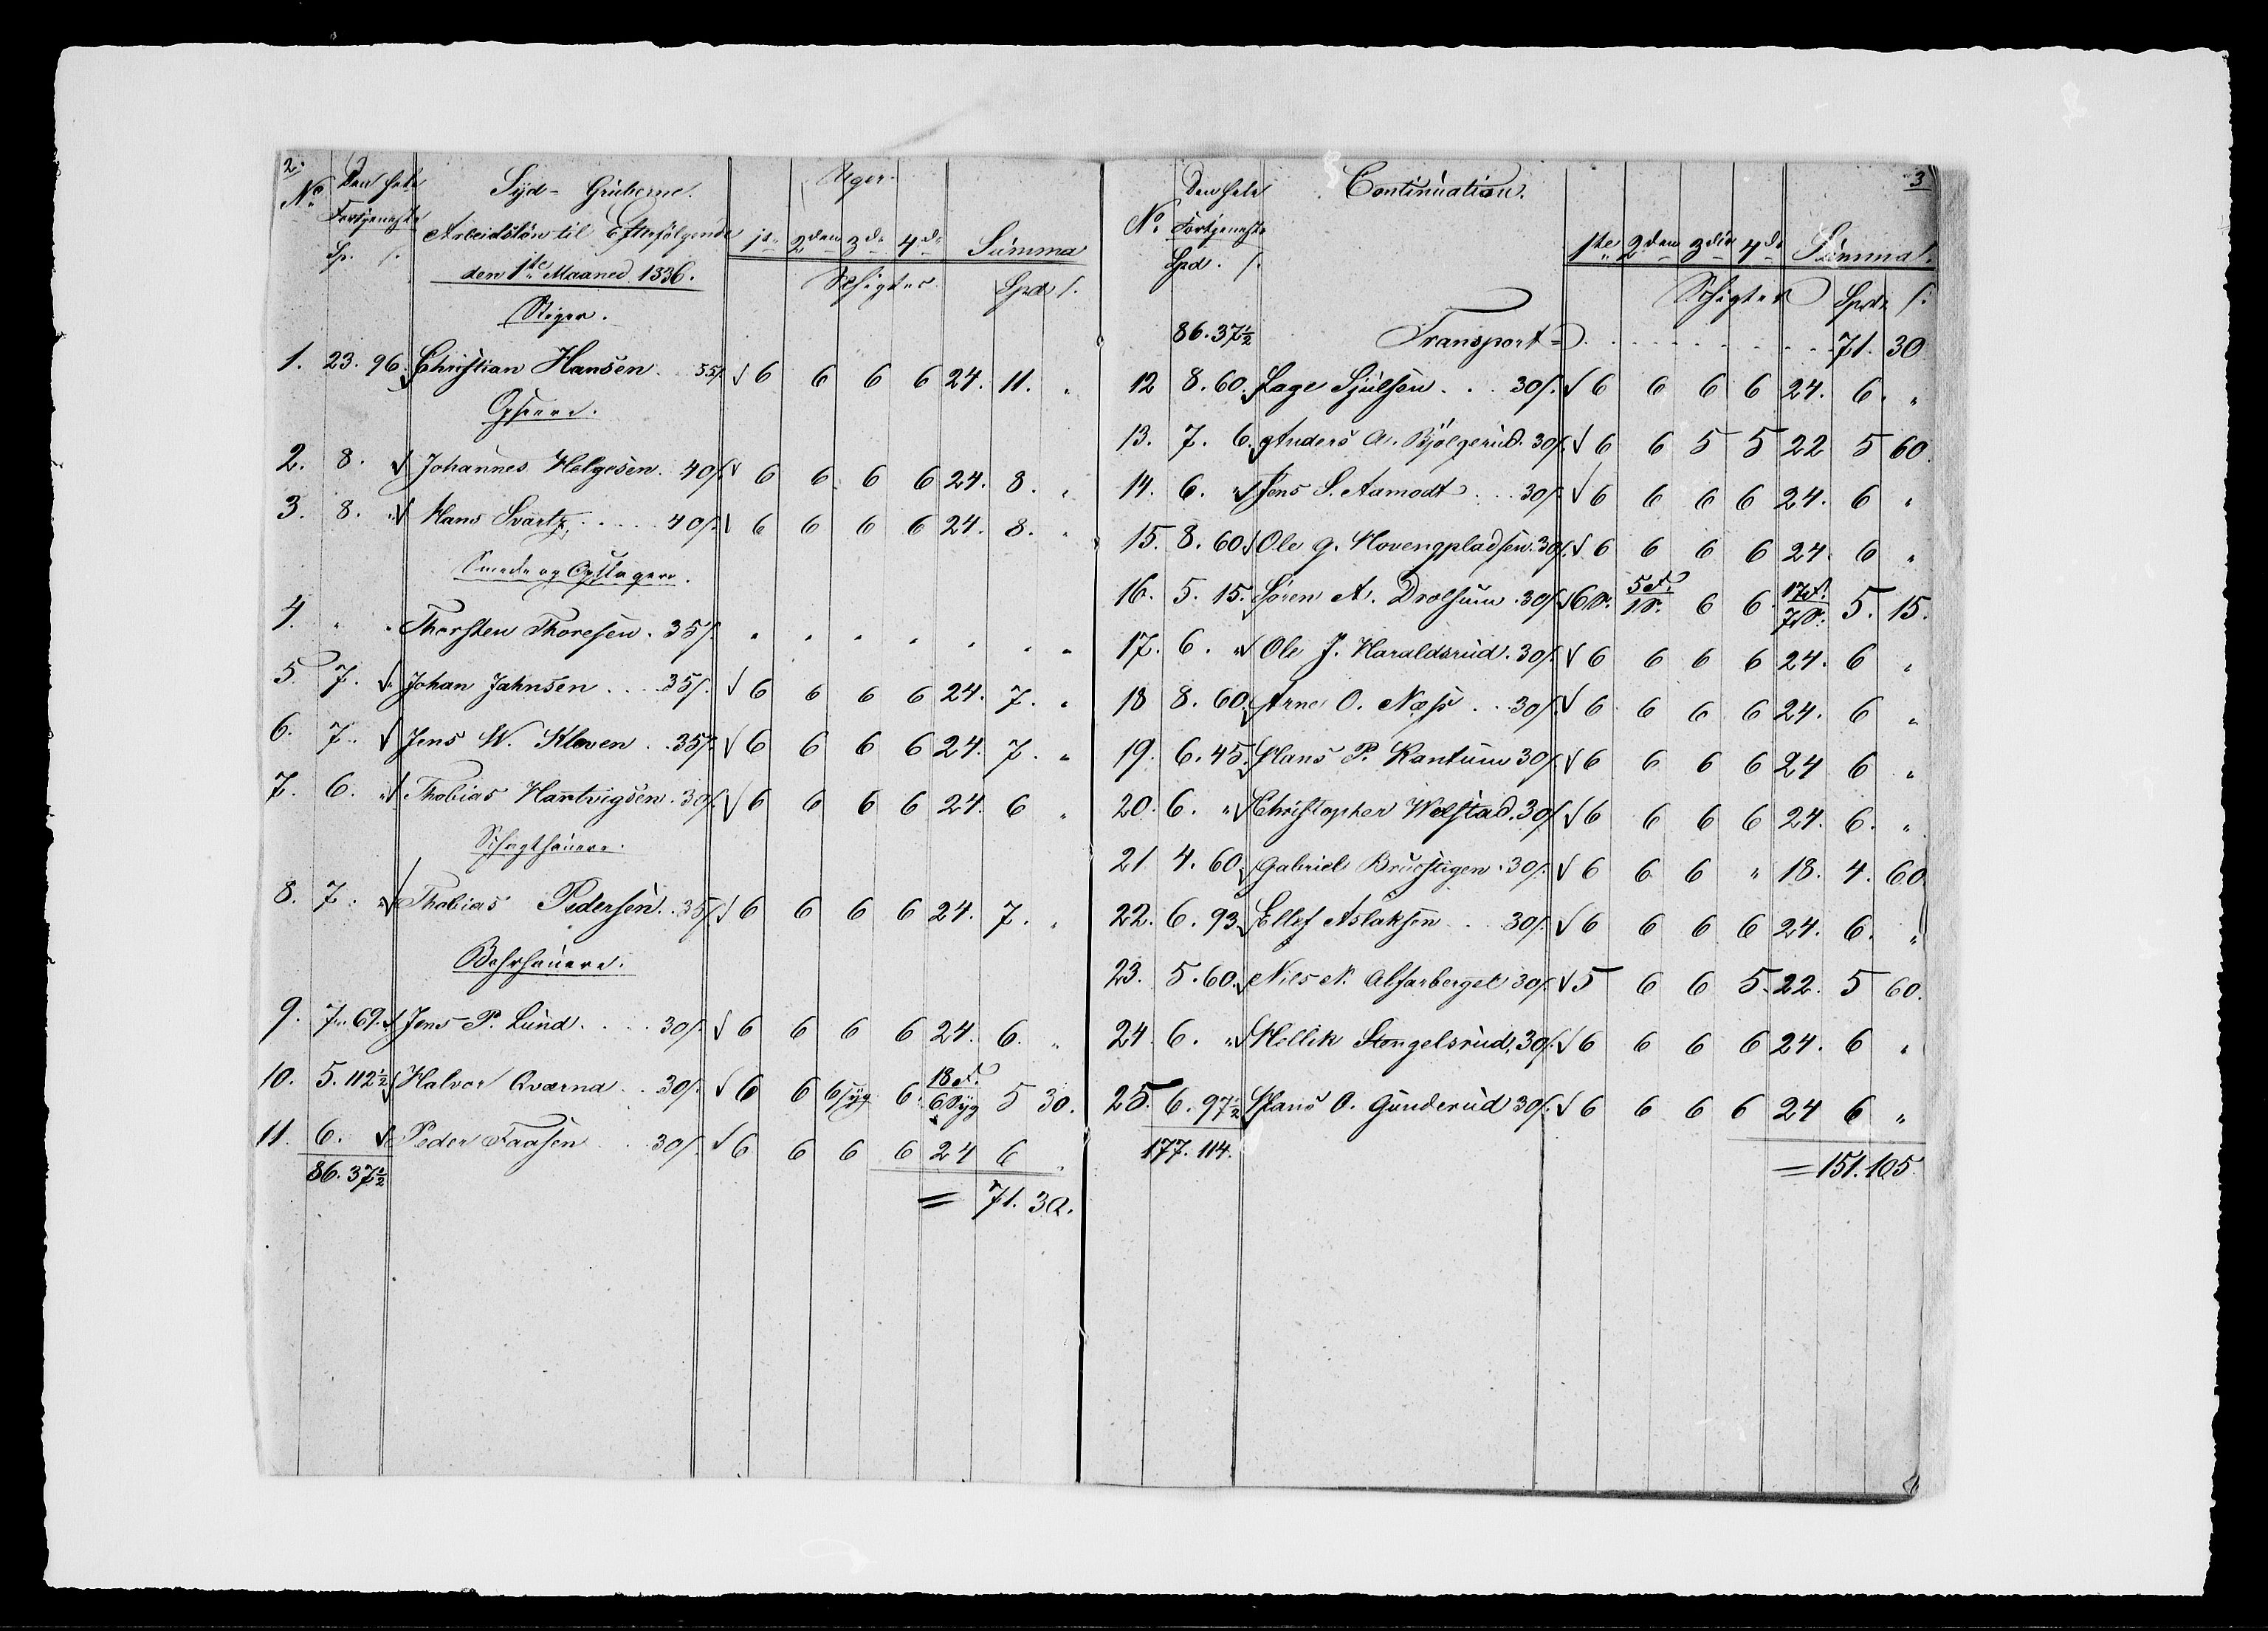 2.
No Den hele Fortjeneste Sp. s.
Syd-Gruberne.
Arbeidslön til Efterfölgende
den 1te Maaned 1836.
Uger
1ste 2den 3de 4de Summa
Schigter Spd s.
Stiger.
1. 23. 96. Christian Hansen . 55s. 6 6 6 6 24. 11. "
2. 8. " Johannes Helgesen . 40s. 6 6 6 6 24. 8. "
3. 8. " Hans Svartz . . . . 40s. 6 6 6 6 24. 8. "
Smede og Opslagere.
4. " " Thorsten Thoresen . 35s. " " " " " " "
5. 7. " Johan Jahnsen . . . 35s. 6 6 6 6 24. 7. "
6. 7. " Jens W. Kleven . . 35s. 6 6 6 6 24. 7. "
7. 6. " Thobias Hantvigsen . 30s. 6 6 6 6 24. 6 "
8. 7. " Thobias Pedersen . 35s. 6 6 6 6 24. 7. "
Bohrhauere.
9. 7. 69. Jens P. Lund . . . . 30s. 6 6 6 6 24. 6. "
10. 5. 112½ Halvor Qværna . . 30s. 6 6 6 syg 6. 18 F. 6 Syg 5 30.
11. 6. " Peder Faasen . . 30s. 6 6 6 6 24 6 "
86. 37½ = 71. 30.
3
No Den hele Fortjeneste Spd. s.
Continuation.
1ste 2den 3die 4de Summa.
Schigter Spd. s.
86. 37½ Transport = . . . . . . . . . 71. 30
12 8. 60. Lage Sjulsen . . . 30s. 6 6 6 6 24. 6. "
13. 7. 6. Anders A. Bjölgerud . 30s. 6 6 5 5 22 5 60.
14. 6. " Jens S. Aamodt . . . 30s. 6 6 6 6 24. 6 "
15. 8. 60. Ole G. Hovengpladsen . 30s. 6 6 6 6 24. 6 "
16. 5. 15. Sören A. Drolsum . 30s. 6 P. 5 F. 1 P. 6 6. 17 F. 7 P. 5. 15.
17. 6. " Ole J. Haraldsrud . 30s. 6 6 6 6 24. 6 "
18 8. 60. Arne O. Næss . . 30s. 6 6 6 6 24. 6 "
19. 6. 45. Hans P. Kantum 30s. 6 6 6 6 24 6 "
20. 6. " Christopher Welstad . 30s. 6 6 6 6 24. 6. "
21 4. 60. Gabriel Brustigen . 30s. 6 6 6 " 18. 4. 60.
22. 6. 93. Ellef Aslaksen . . . 30s. 6 6 6 6 24. 6. "
23. 5. 60. Nils N. Alfarberget 30s. 5 6 6 5. 22. 5 60.
24. 6. " Hellik Stengelsrud, 30s. 6 6 6 6 24. 6 "
25. 6. 97½ Hans O. Gunderud 30s. 6 6 6 6 24 6 "
177. 114. = 151. 105.